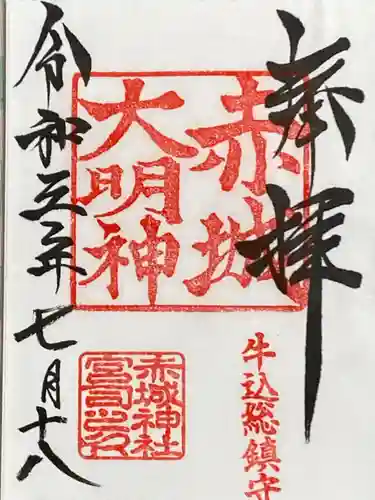 奉拝
赤城
大明神
牛込総鎮守
赤城神社
宮司之印
令和五年七月十八